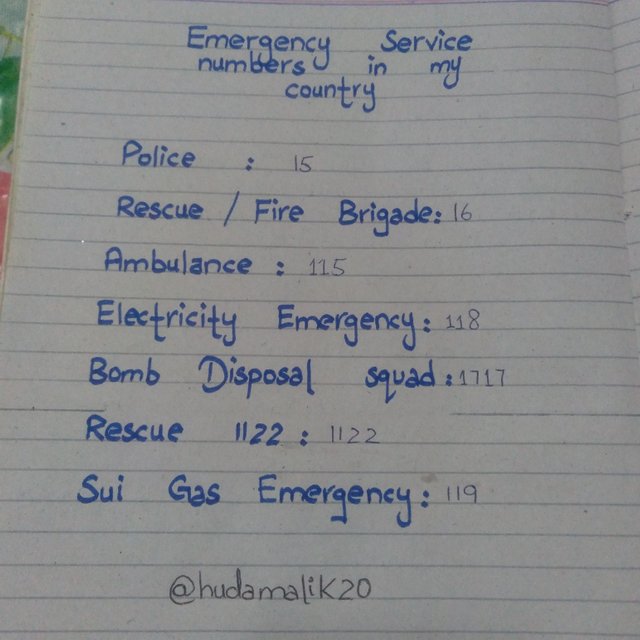 Emergency Service
numbers in my
country
Police : 15
Rescue / Fire Brigade: 16
Ambulance : 115
Electricity Emergency: 118
Bomb Disposal squad: 1717
Rescue 1122 : 1122
Sui Gas Emergency: 119
@hudamalik20